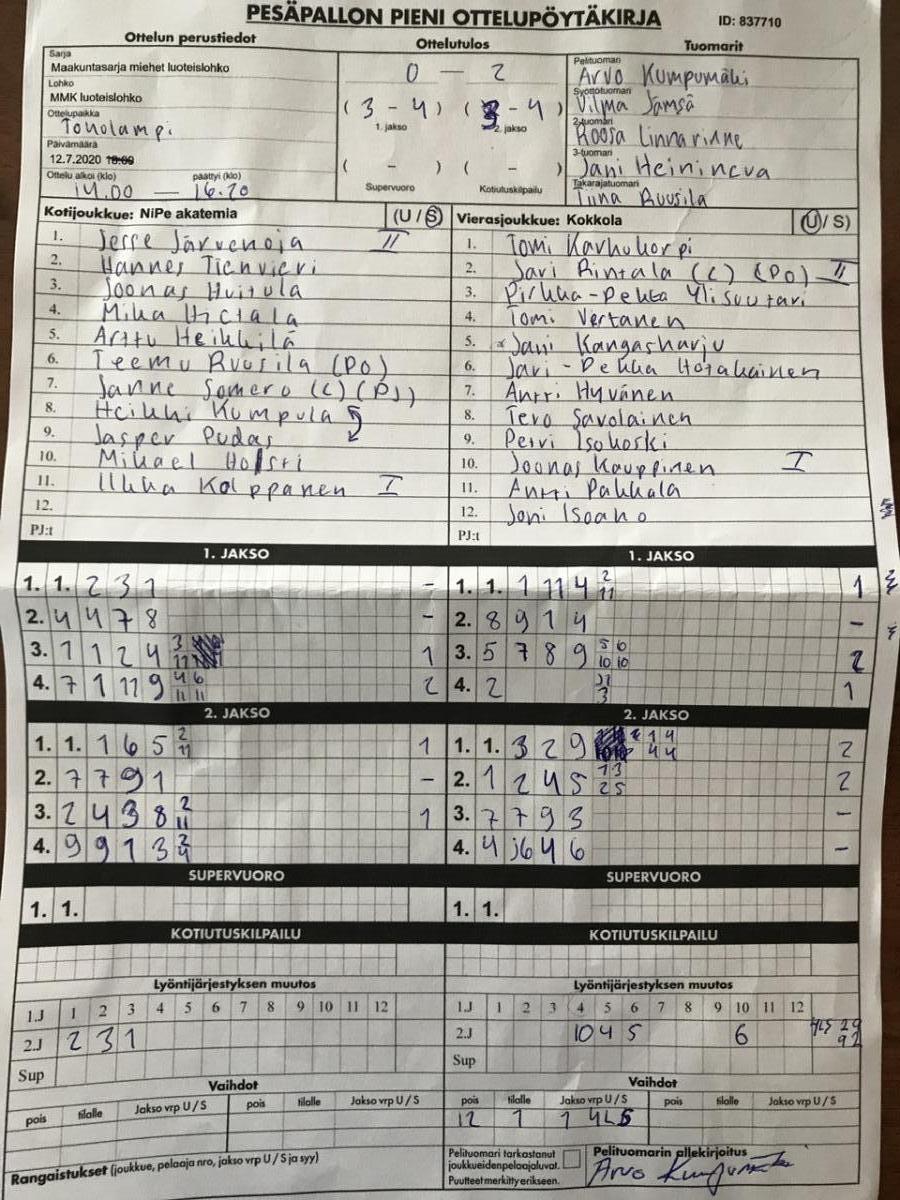 PESÄPALLON PIENI OTTELUPÖYTÄKIRJA ID: 837710
Ottelun perustiedot Ottelutulos Tuomarit
Sarja
Maakuntasarja miehet luoteislohko
Lohko
MMK luoteislohko
Ottelupaikka
Toholampi
Päivämäärä
12.7.2020 18:00
Ottelu alkoi (klo) päättyi (klo)
14.00 — 16.20
0 — 2
(3 - 4) (3 - 4)
1. jakso 2. jakso
( - ) ( - )
Supervuoro Kotiutuskilpailu
Pelituomari
Arvo Kumpumäki
Syöttötuomari
Vilma Jämsä
2-tuomari
Roosa Linnarinne
3-tuomari
Jani Heinineva
Takarajatuomari
Tiina Ruusila
Kotijoukkue: NiPe akatemia (U / S)
1. Jesse Järvenoja II
2. Hannes Tienvieri
3. Joonas Huitula
4. Mika Hietala
5. Arttu Heikkilä
6. Teemu Ruusila (PO)
7. Janne Somero (C) (PJ)
8. Heikki Kumpula
9. Jasper Pudas
10. Mikael Holsti
11. Ilkka Kolppanen I
12.
PJ:t
Vierasjoukkue: Kokkola (U / S)
1. Tomi Karhukorpi
2. Jari Rintala (C) (PO) II
3. Pirkka-Pekka Ylisuutari
4. Tomi Vertanen
5. Jani Kangasharju
6. Jari-Pekka Hotakainen
7. Antti Hyvönen
8. Tero Savolainen
9. Petri Isokoski
10. Joonas Kauppinen I
11. Antti Pakkala
12. Joni Isoaho
PJ:t
1. JAKSO
1. 1. 2 3 1 -
2. 4 4 7 8 -
3. 1 1 2 4 3 11 1
4. 7 1 11 9 4 6 11 11 2
1. JAKSO
1. 1. 1 11 4 2 11 1
2. 8 9 1 4 -
3. 5 7 8 9 5 6 10 10 2
4. 2 3 1
2. JAKSO
1. 1. 1 6 5 2 11 1
2. 7 7 9 1 -
3. 2 4 3 8 2 11 1
4. 9 9 1 3 2 4
2. JAKSO
1. 1. 3 2 9 1 4 4 4 2
2. 1 2 4 5 1 3 2 5 2
3. 7 7 9 3 -
4. 4 j6 4 6 -
SUPERVUORO SUPERVUORO
1. 1. 1. 1.
KOTIUTUSKILPAILU KOTIUTUSKILPAILU
Lyöntijärjestyksen muutos
1.J 1 2 3 4 5 6 7 8 9 10 11 12
2.J 2 3 1
Sup
Lyöntijärjestyksen muutos
1.J 1 2 3 4 5 6 7 8 9 10 11 12
2.J 10 4 5 6
Sup
Vaihdot
pois tilalle Jakso vrp U / S pois tilalle Jakso vrp U / S
Vaihdot
pois tilalle Jakso vrp U / S pois tilalle Jakso vrp U / S
12 1 1 4LS
Rangaistukset (joukkue, pelaaja nro, jakso vrp U / S ja syy)
Pelituomari tarkastanut
joukkueidenpelaajaluvat.
Puutteet merkitty erikseen.
Pelituomarin allekirjoitus